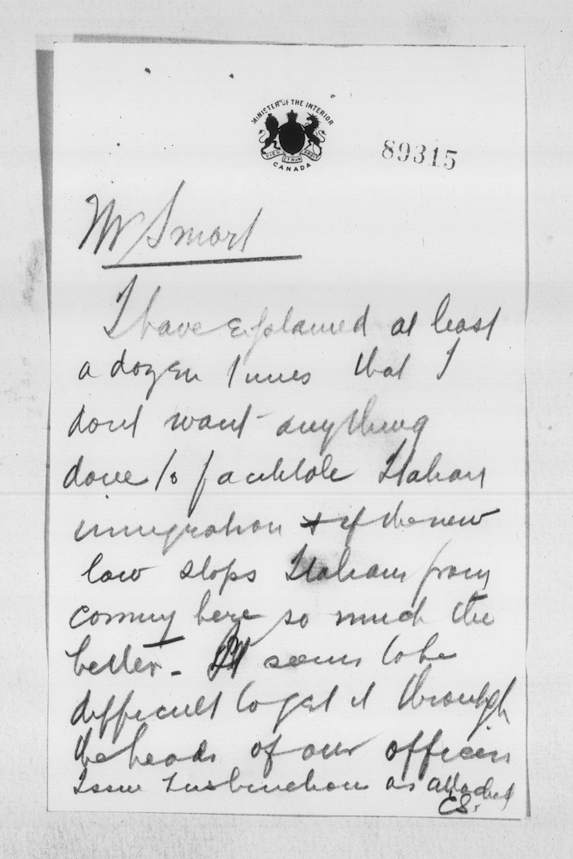 MINISTER OF THE INTERIOR
CANADA
89315
Mr Smart
I have explained at least
a dozen times that I
dont want anything
done to facilitate Italian
immigration & if the new
law stops Italians from
coming here so much the
better - It seems to be
difficult to get it through
the heads of our officers
Issue instructions as attached
CS.